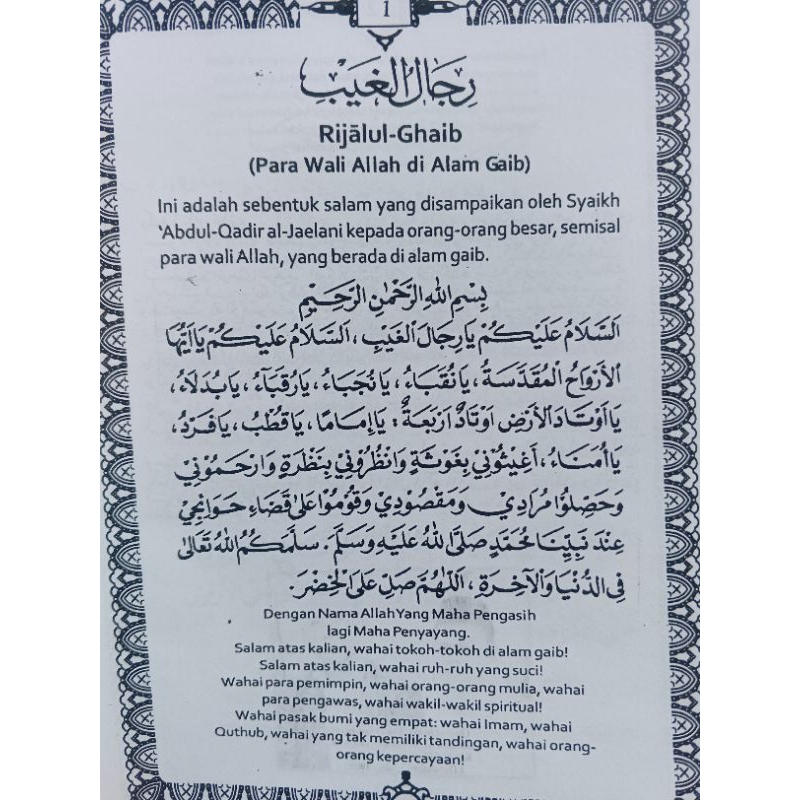 1
رِجَالُ الْغَيْبِ
Rijālul-Ghaib
(Para Wali Allah di Alam Gaib)
Ini adalah sebentuk salam yang disampaikan oleh Syaikh
‘Abdul-Qadir al-Jaelani kepada orang-orang besar, semisal
para wali Allah, yang berada di alam gaib.
بِسْمِ اللهِ الرَّحْمٰنِ الرَّحِيْمِ
اَلسَّلَامُ عَلَيْكُمْ يَا رِجَالَ الْغَيْبِ، اَلسَّلَامُ عَلَيْكُمْ يَا اَيَّتُهَا
الْأَرْوَاحُ الْمُقَدَّسَةُ، يَا نُقَبَاءُ، يَا نُجَبَاءُ، يَا رُقَبَاءُ، يَا بُدَلَاءُ،
يَا أَوْتَادَ الْأَرْضِ اَوْتَادٌ اَرْبَعَةٌ: يَا اِمَامَا، يَا قُطْبُ، يَا فَرْدُ،
يَا أُمَنَاءُ، أَغِيْثُوْنِي بِغَوْثَةٍ وَانْظُرُوْنِي بِنَظْرَةٍ وَارْحَمُوْنِي
وَحَصِلُوْا مُرَادِيْ وَمَقْصُوْدِيْ وَقُوْمُوْا عَلَى قَضَاءِ حَوَائِجِيْ
عِنْدَ نَبِيِّنَا مُحَمَّدٍ صَلَّى اللهُ عَلَيْهِ وَسَلَّمَ. سَلَّمَكُمُ اللهُ تَعَالَى
فِي الدُّنْيَا وَالْآخِرَةِ، اَللّٰهُمَّ صَلِّ عَلَى الْخِضْرِ.
Dengan Nama Allah Yang Maha Pengasih
lagi Maha Penyayang.
Salam atas kalian, wahai tokoh-tokoh di alam gaib!
Salam atas kalian, wahai ruh-ruh yang suci!
Wahai para pemimpin, wahai orang-orang mulia, wahai
para pengawas, wahai wakil-wakil spiritual!
Wahai pasak bumi yang empat: wahai Imam, wahai
Quthub, wahai yang tak memiliki tandingan, wahai orang-
orang kepercayaan!